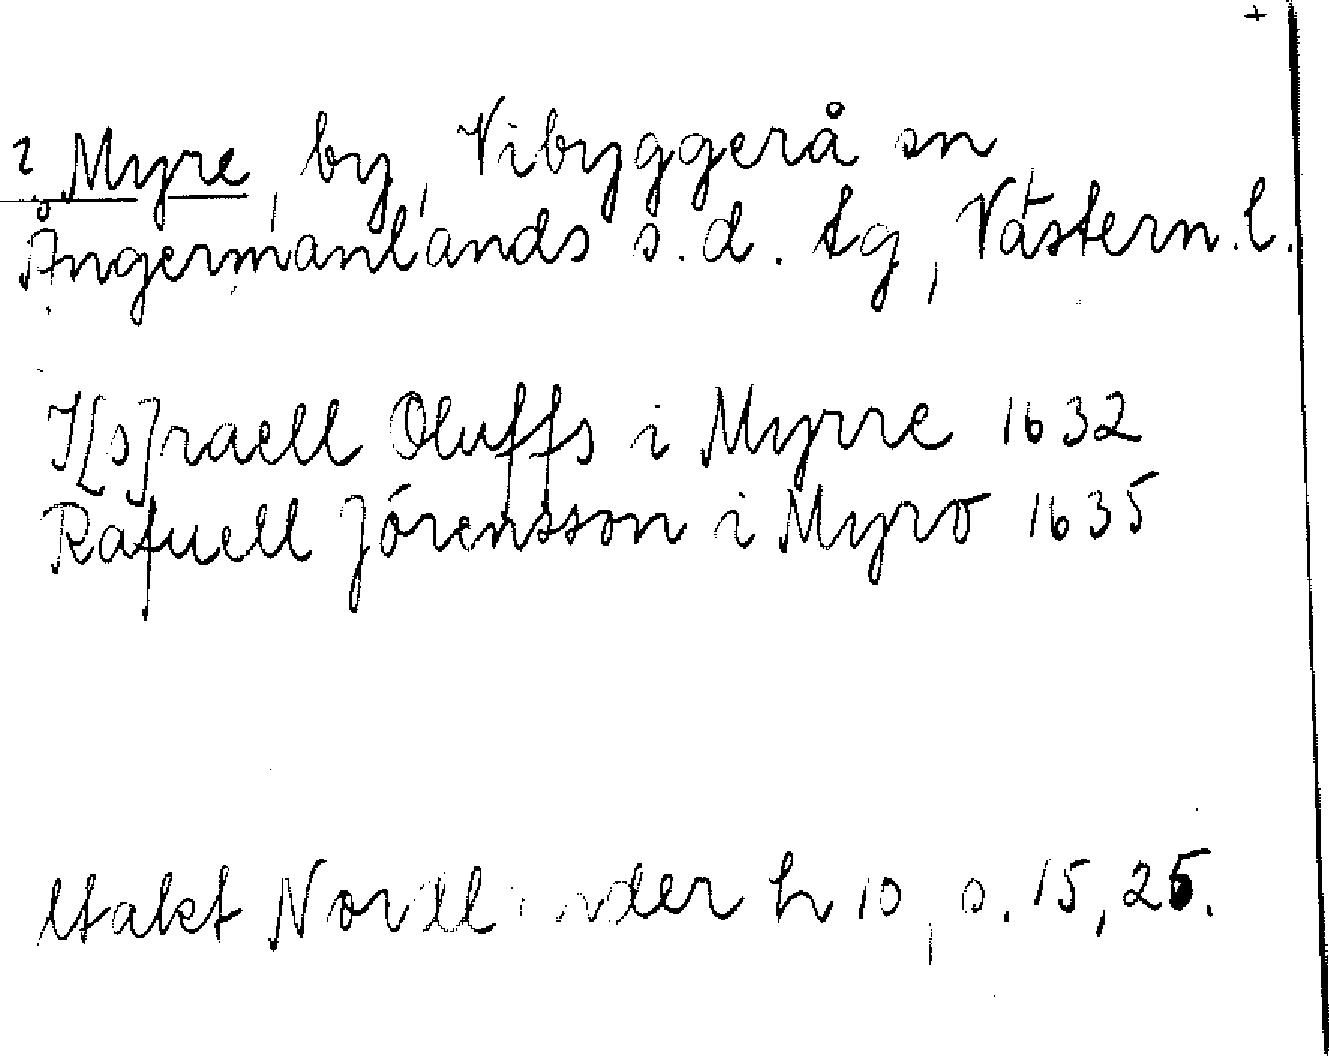 +
? Myre, by, Vibyggerå sn,
Ångermanlands s.d. tg, Västern.l.
I[s]raell Oluffs i Myrre 1632
Rafuell Jörensson i Myrö 1635
Utakt Nordlander h 10, s. 15, 25.